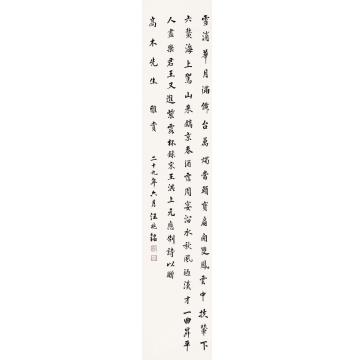 雪消華月滿僊台萬燭當頭寶扇開雙鳳雲中扶輦下
六鰲海上駕山來鎬京春酒霑周宴汾水秋風陋漢才一曲昇平
人盡樂君王又進紫霞杯錄宋王淇上元應制詩以贈
高木先生 雅賞 二十九年六月 汪兆銘